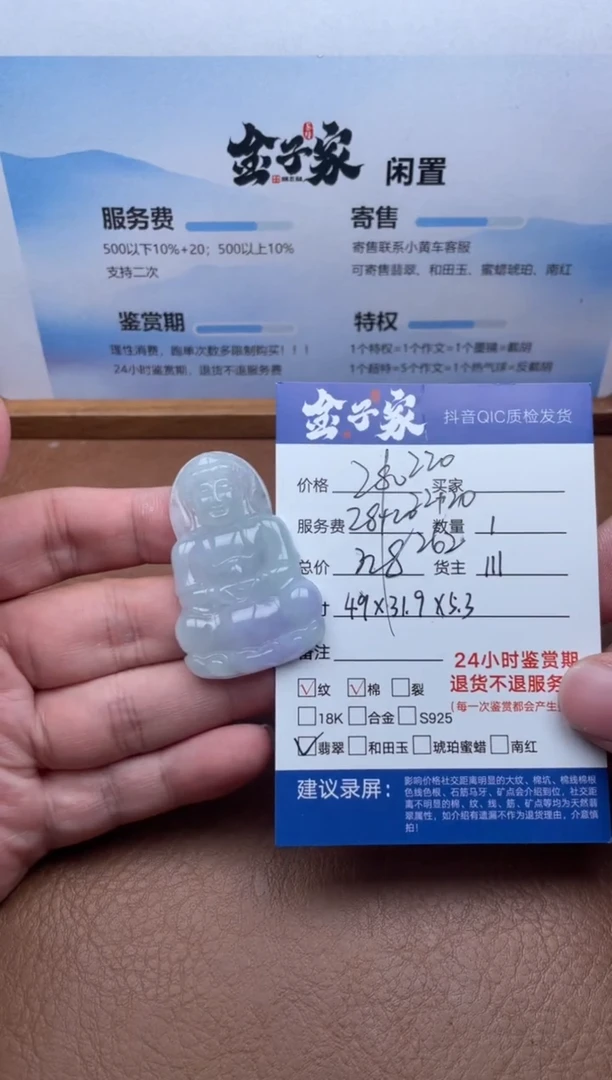 金子家 闲置
服务费
500以下10%+20；500以上10%
支持二次
寄售
寄售联系小黄车客服
可寄售翡翠、和田玉、蜜蜡琥珀、南红
鉴赏期
理性消费，跑单次数多限制购买！！！
24小时鉴赏期，退货不退服务费
特权
1个特权=1个作文=1个墨镜=截胡
1个超特=5个作文=1个热气球=反截胡
金子家 抖音QIC质检发货
价格 280 220 买家
服务费 28+20 22+20 数量 1
总价 328 262 货主 111
寸 49×31.9×5.3
备注
24小时鉴赏期
退货不退服务
(每一次鉴赏都会产生
纹 棉 裂
18K 合金 S925
翡翠 和田玉 琥珀蜜蜡 南红
建议录屏：
影响价格社交距离明显的大纹、棉坑、棉线棉根
色线色根、石筋马牙、矿点会介绍到位，社交距
离不明显的棉、纹、线、筋、矿点等均为天然翡
翠属性，如介绍有遗漏不作为退货理由，介意慎
拍！